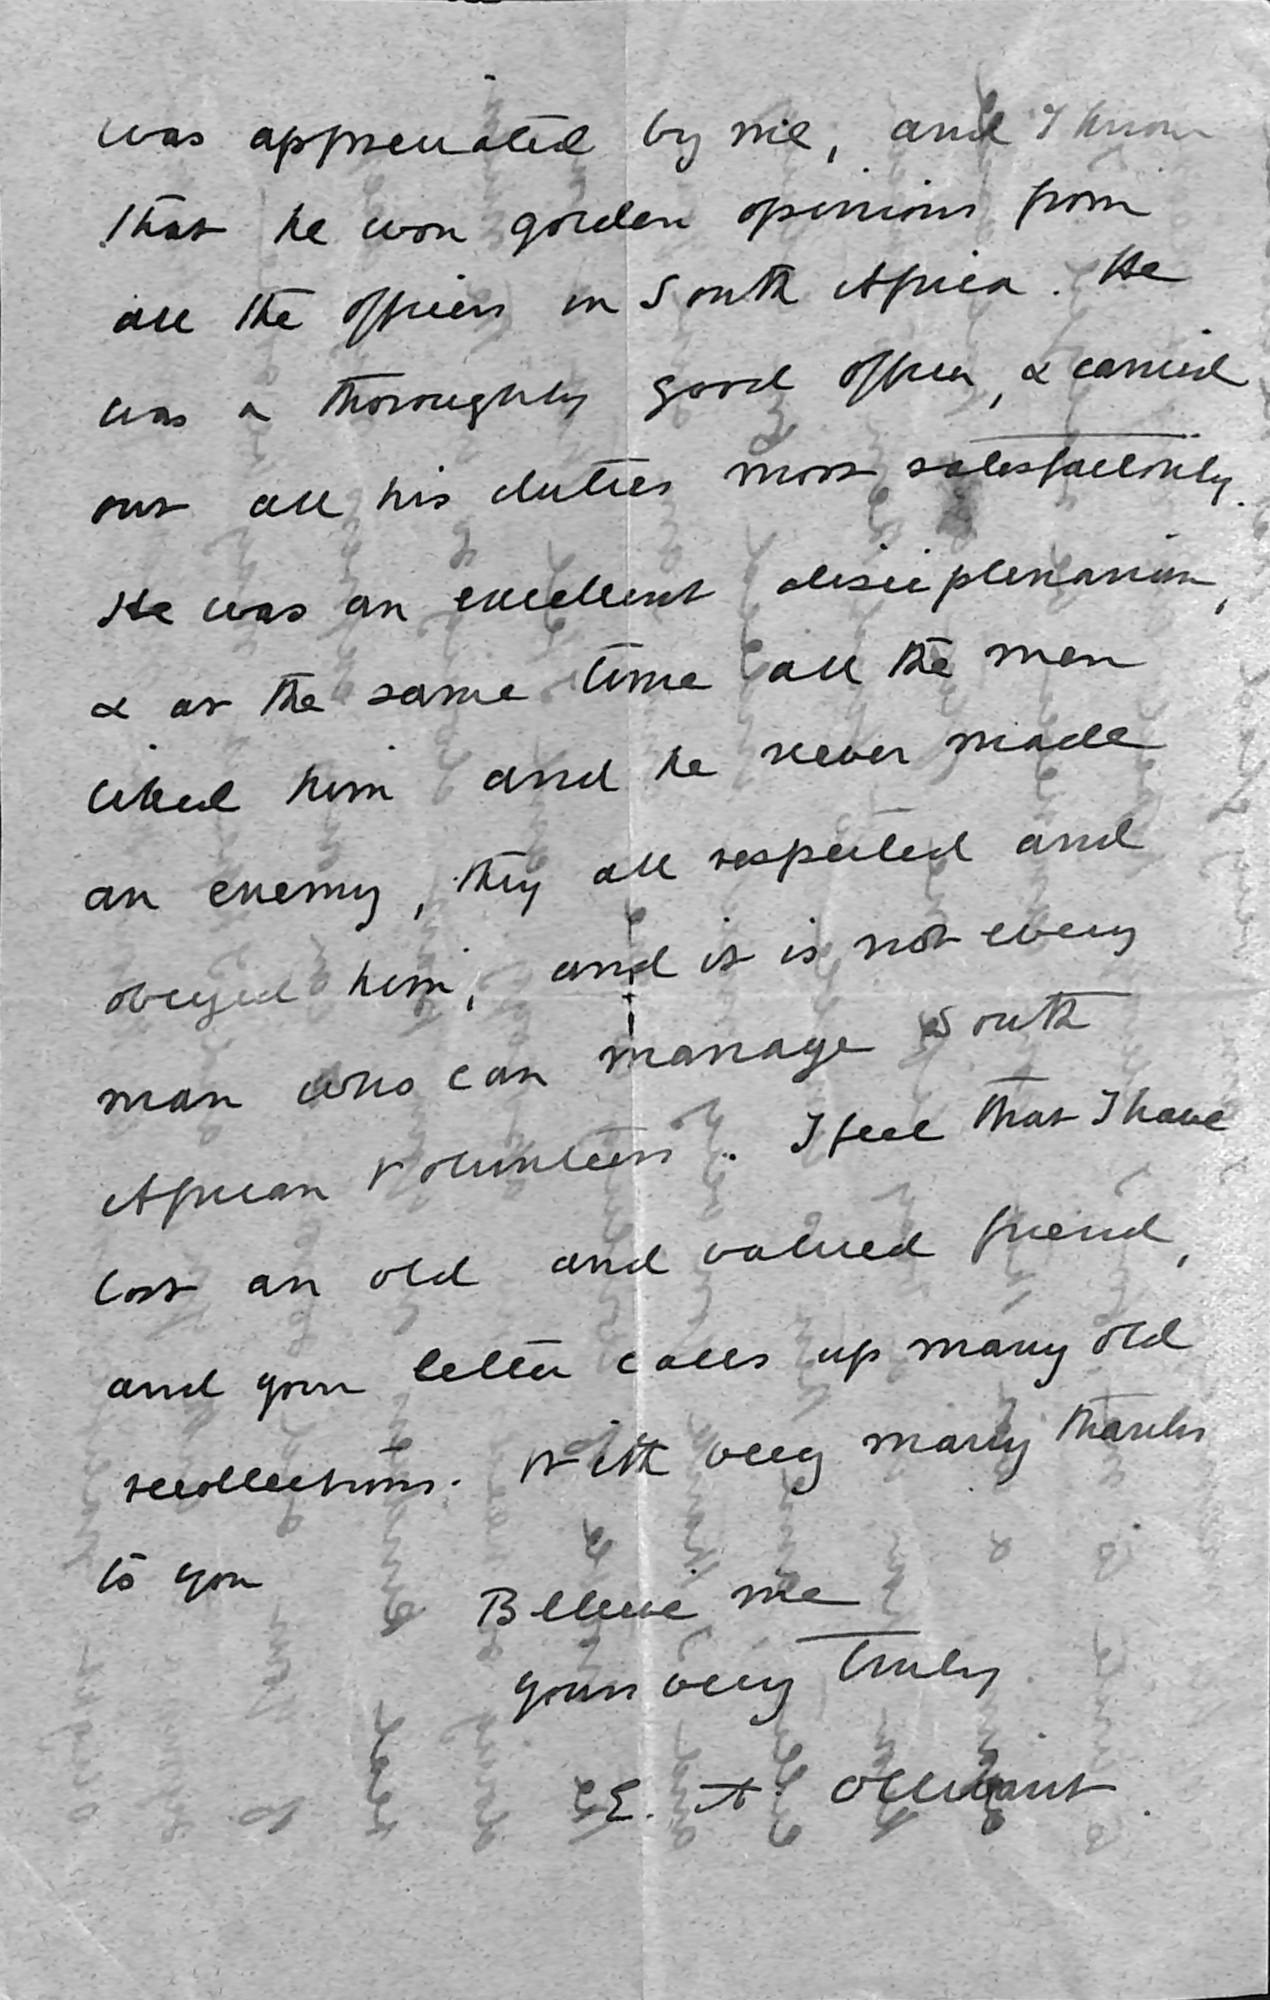 was appreciated by me, and I know
that he won golden opinions from
all the officers in South Africa. He
was a thoroughly good officer, & carried
out all his duties most satisfactorily.
He was an excellent disciplinarian,
& at the same time all the men
liked him and he never made
an enemy, they all respected and
obeyed him, and it is not every
man who can manage South
African Volunteers. I feel that I have
lost an old and valued friend,
and your letter calls up many old
recollections. With very many thanks
to you
Believe me
yours very truly
E. A. Ollivant